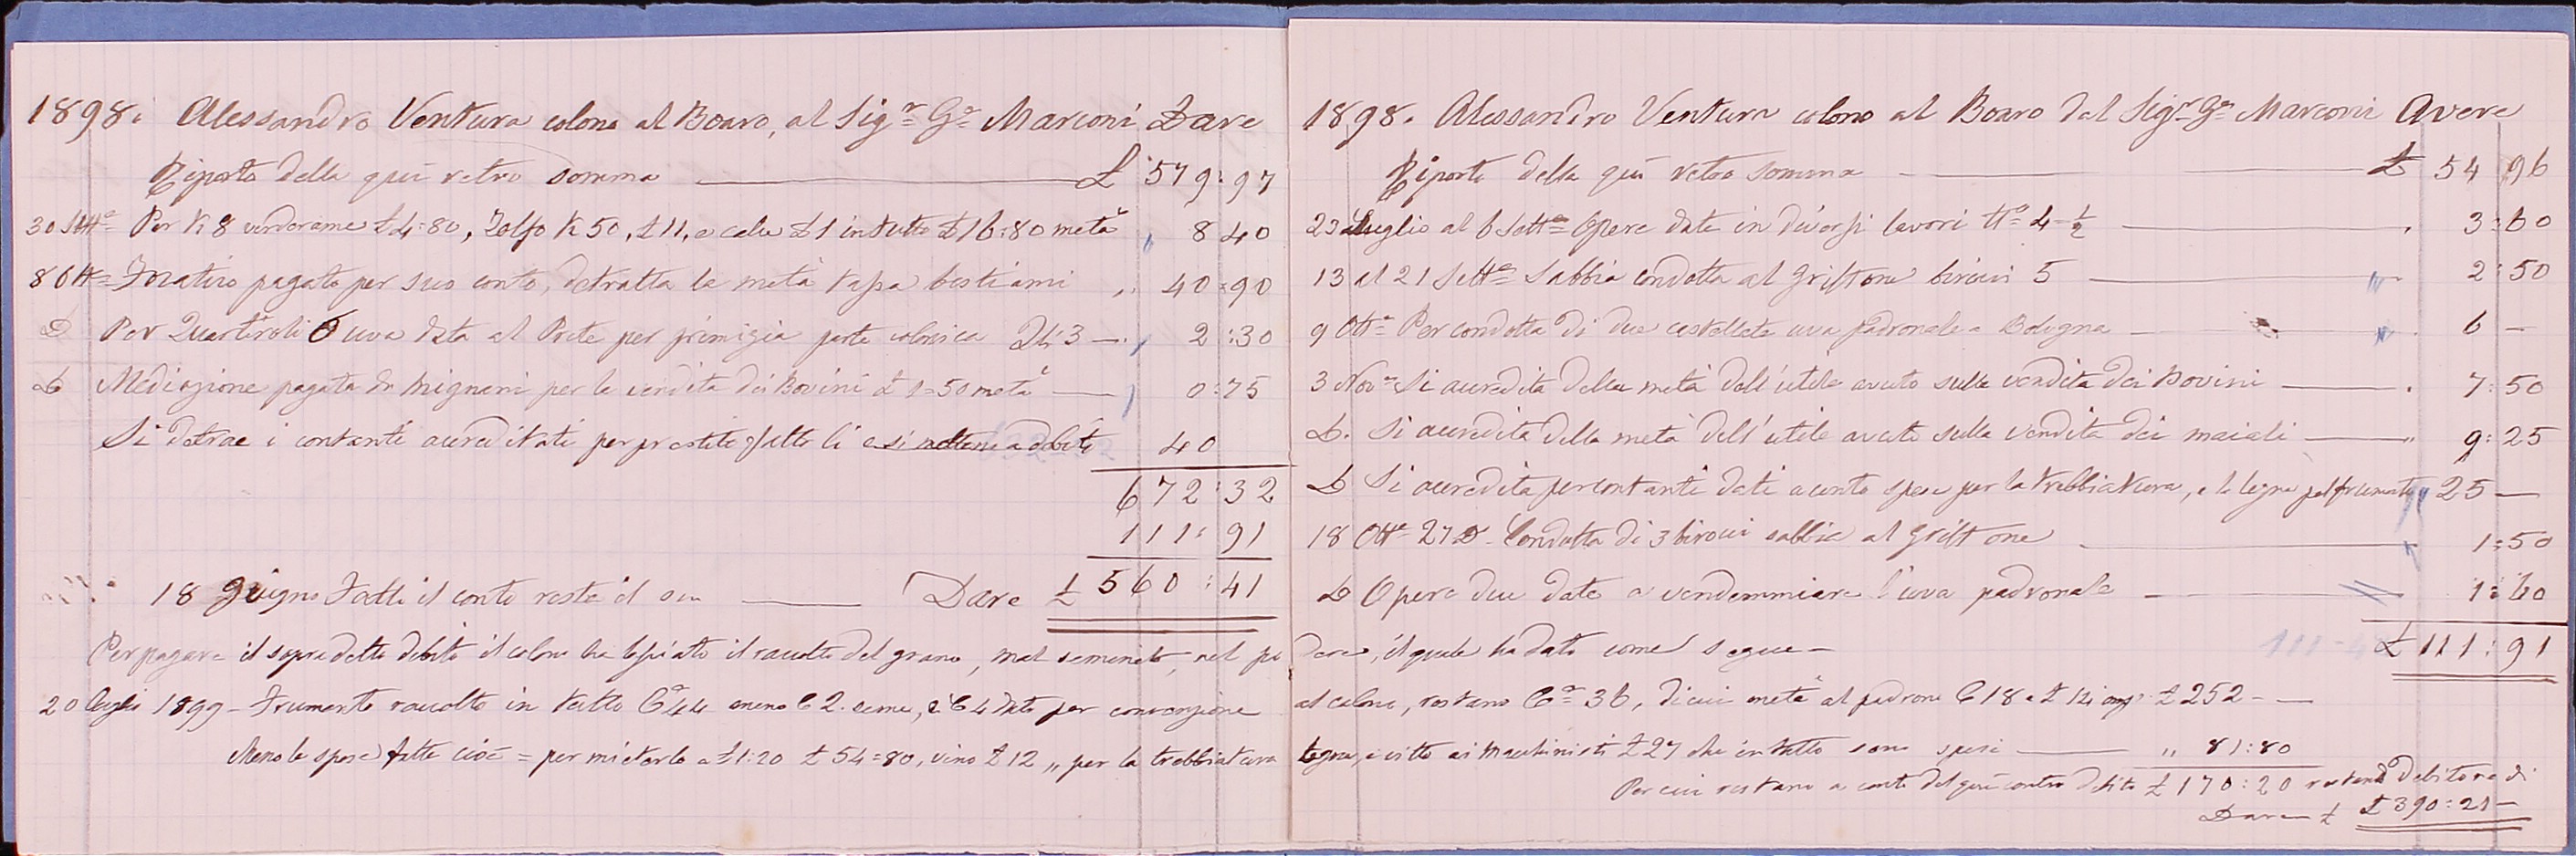 1898. Alessandro Ventura colono al Boaro, al Sigr Ge Marconi Dare
Riporto della qui retro somma £ 579:97
30 Sette Per K 8 verderame £ 4:80, Zolfo K 50, £ 11, e calce £ 1 in tutto £ 16:80 metà " 8 40
8 Otte Focatico pagato per suo conto, detratta la metà tassa bestiami " 40:90
D Per Quartiroli 6 uva data al Prete per primizia parte colonica Qli 3 " 2:30
D Mediazione pagata da Mignani per la vendita dei Bovini £ 1=50 metà " 0:75
Si detrae i contanti accreditati per prestito fatto li e si mettono a debito 40
672:32
111:91
18 Giugno Fatti il conto resta il suo Dare £ 560:41
Per pagare il sopradetto debito il colono ha lasciato il raccolto del grano, mal seminato, nel po
20 luglio 1899 - Frumento raccolto in tutto Ce 44 meno C 2. seme, e C 4 dato per convenzione
Meno le spese fatte cioè = per mieterlo a £ 1:20 £ 54=80, vino £ 12 „ per la trebbiatura
1898. Alessandro Ventura colono al Boaro dal Sigr Ge Marconi Avere
Riporto della qui retro somma £ 54 96
23 Luglio al 6 Sette Opere date in diversi lavori No 4 - ½ 3:60
13 al 21 Sette Sabbia condotta al Grifone birocci 5 " 2:50
9 Otte Per condotta di due castellate uva padronale a Bologna " 6 -
3 Nove Si accredita della metà dell'utile avuto sulla vendita dei Bovini 7:50
D. Si accredita della metà dell'utile avuto sulla vendita dei maiali " 9:25
D Si accredita per contanti dati a conto spese per la trebbiatura, e la legna pel frumento " 25 -
18 Otte 27 D. Condotta di 3 birocci sabbia al Grifone 1:50
D Opere due date a vendemmiare l'uva padronale 1:60
£ 111:91
dere, il quale ha dato come segue -
al colono, restano Ce 36, di cui metà al padrone C 18 a £ 14 £ 252 -
legna, e vitto ai Macchinisti £ 27 che in tutto sono spese " 81:80
Per cui restano a conto del qui contro debito £ 170:20 restando debitore di
Dare £ £ 390:21 -